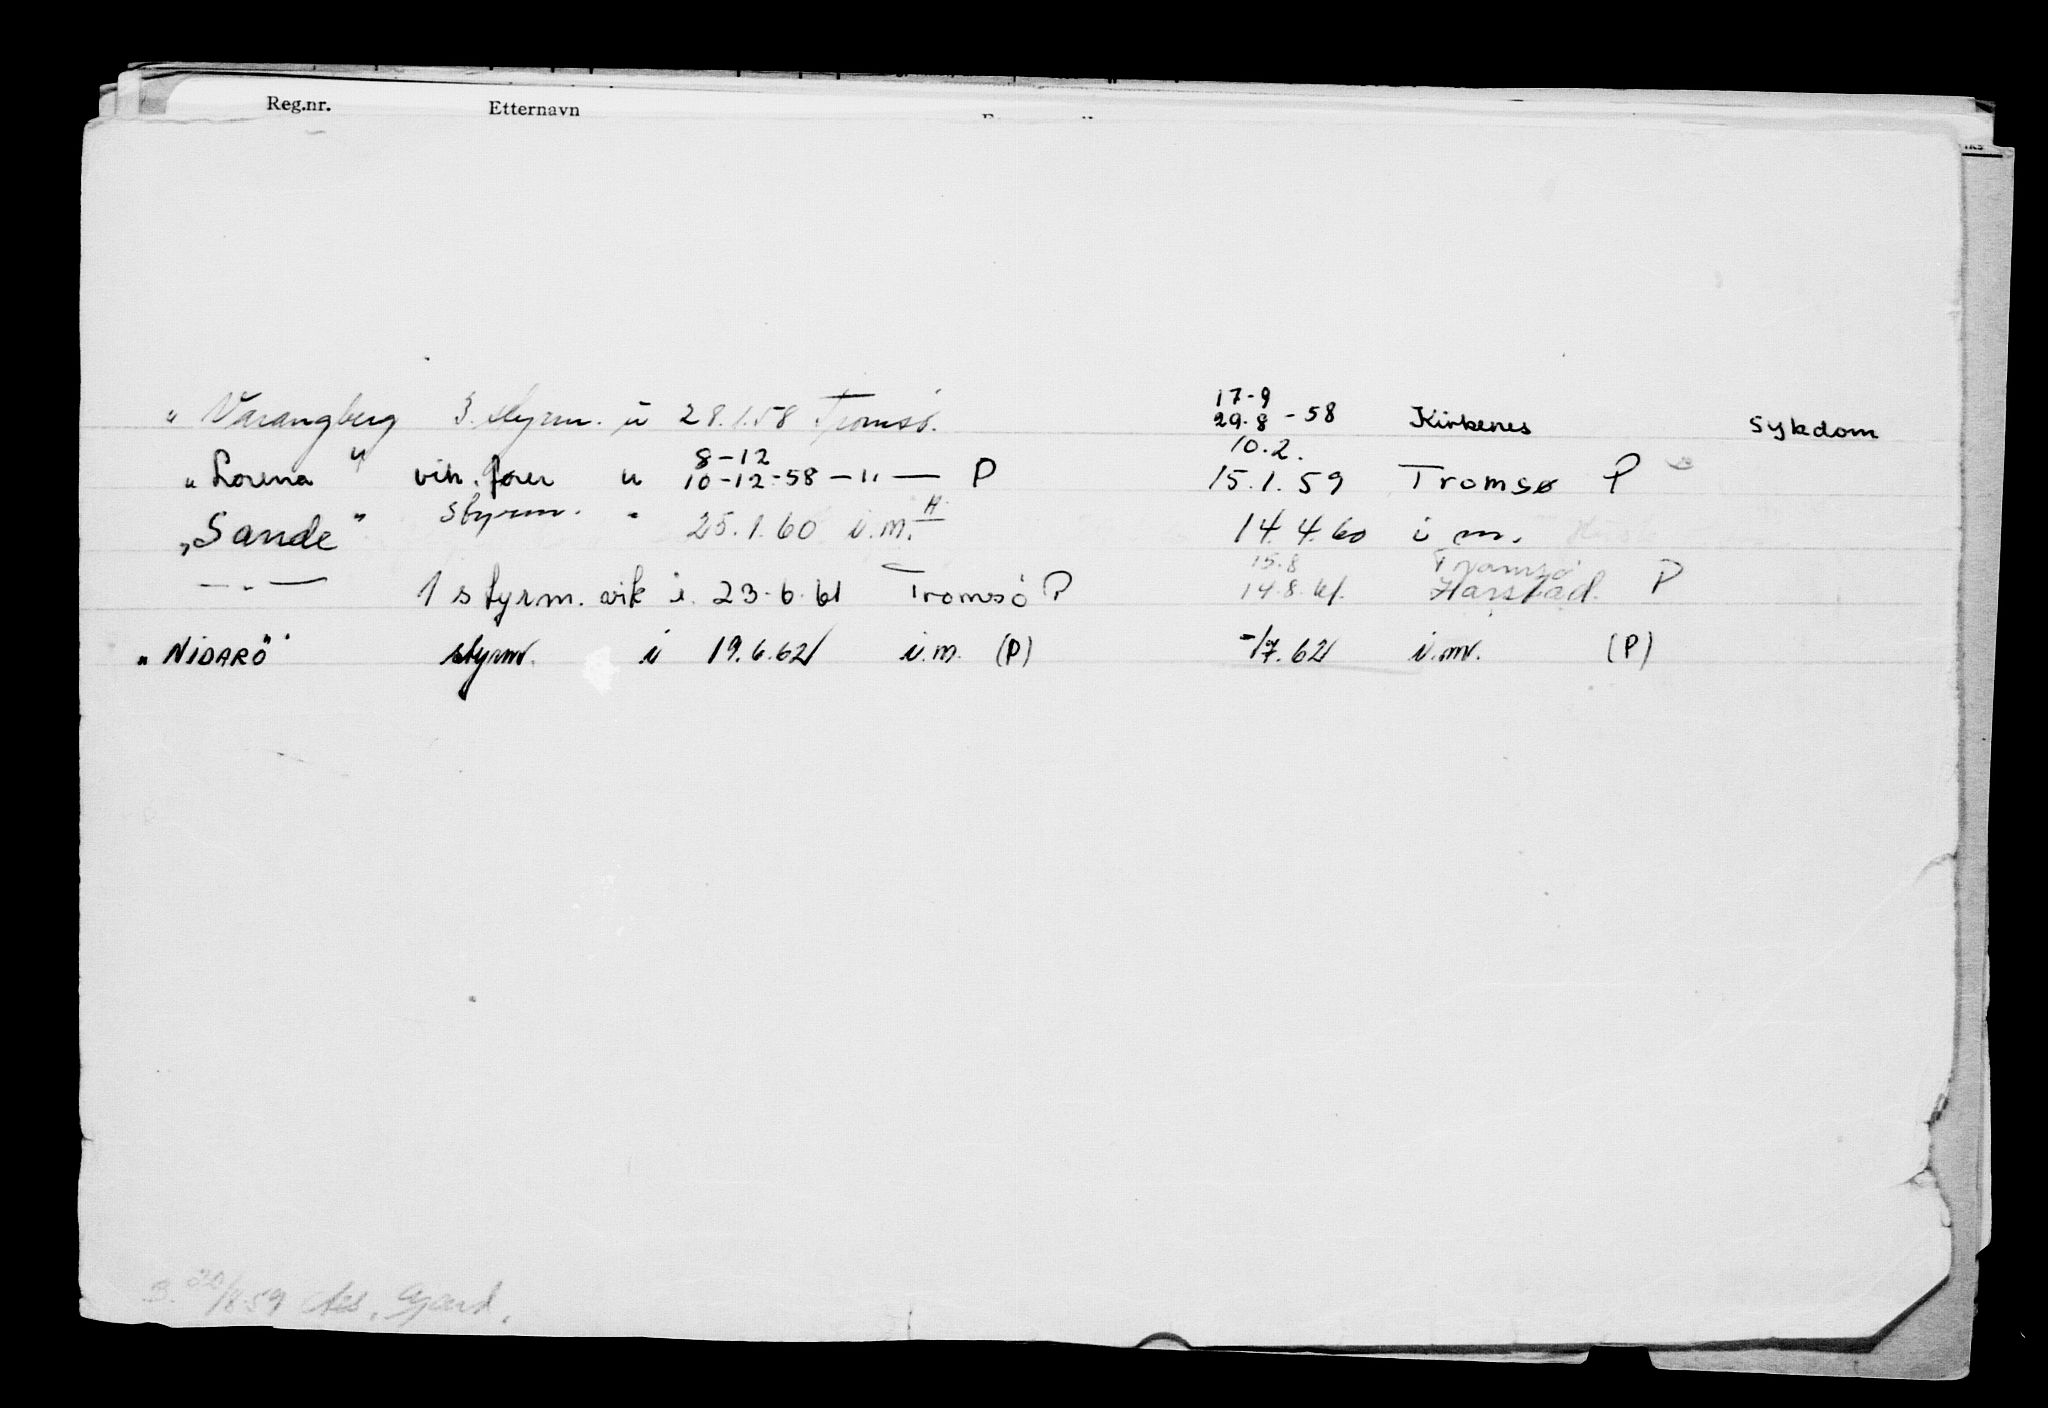 Reg.nr. Etternavn
17-9
" Varangberg 3. styrm. u 28.1.58 Tromsö. 29.8 -58 Kirkenes Sykdom
8-12 10.2.
" Lorena " vik. fører u 10-12-58 -"- P 15.1.59 Tromsø P
„Sande" styrm. " 25.1.60 i.m. H 14.4.60 i m.
15.8 Tromsö
-"- 1 styrm. vik i. 23.6.61 Tromsö P 14.8.61. Harstad. P
„NIDARÖ" styrm. u 19.6.62 i.m. (P) -/7.62 i.m. (P)